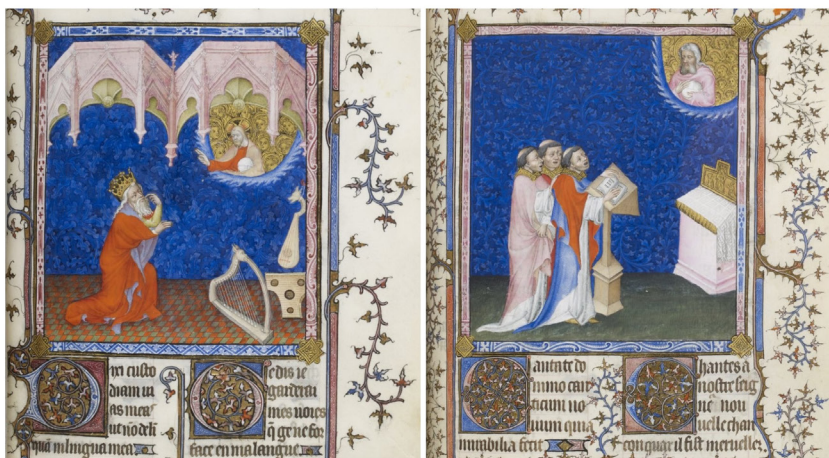 Dixi custo
diam ui
as mea
ut nō deli
quā in lingua mea
e dis ie
garderai
mes uoies
q̄ ge ne for
face en ma langue
Cantate do
mino can
ticum no
uum quia
mirabilia fecit
Chantes a
nostre seig
nou
uelle chan
con quar il fist merueilles